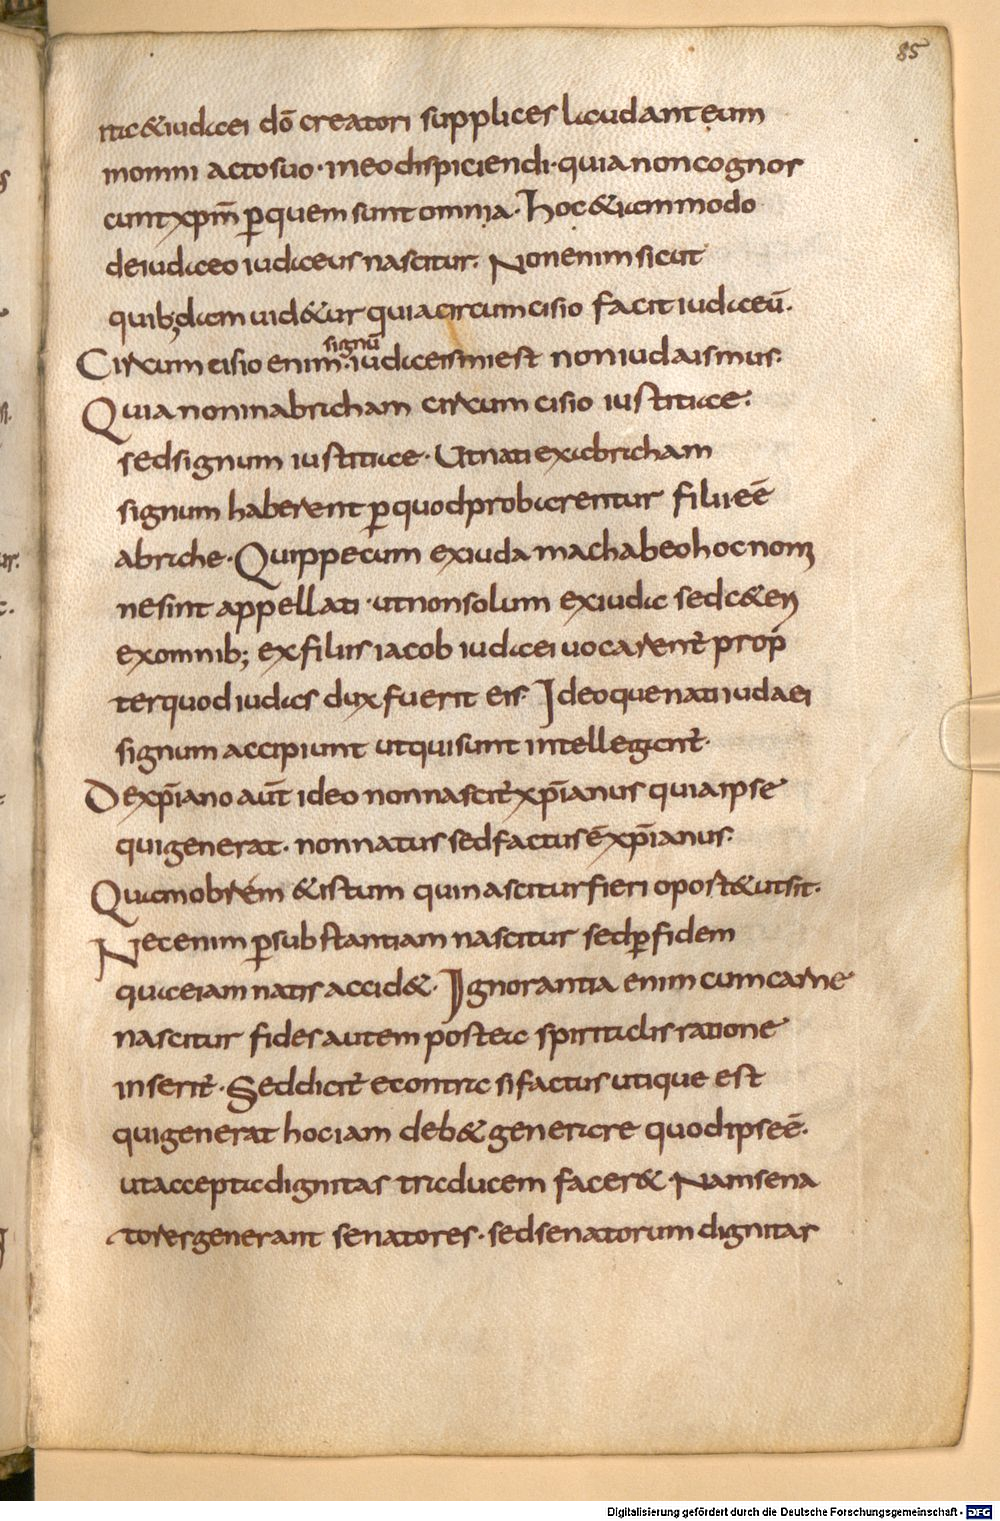 85
nta & iudaei dō creatori supplices laudant eum
in omni acto suo · in eo dispiciendi · quia non cognos
cunt xpm̄ ꝑ quem sunt omnia · Hoc & iam modo
de iudaeo iudaeus nascitur. Non enim sicut
quibꝫdam uid&ur quia circumcisio facit iudaeū.
signū
Circumcisio enim · iudaeismi est non iudaismus.
Quia non in abraham circumcisio iustitiae.
sed signum iustitiae · Ut nati ex abraham
signum haberent ꝑ quod probarentur filii eē
abrahe · Quippe cum ex iuda machabeo hoc nom
ne sint appellati · ut non solum ex iuda sed & ex
ex omnib; ex filiis iacob iudaei uocarent̄ prop
ter quod iudas dux fuerit eis. Ideoque nati iudaei
signum accipiunt ut qui sunt intellegant̄.
De xp̄iano aūt ideo non nascit̄ xp̄ianus quia ipse
qui generat · non natus sed factus ē xp̄ianus.
Quamobrem & istum qui nascitur fieri oport& ut sit.
Nec enim ꝑ substantiam nascitur sed ꝑ fidem
quae iam natis accid&. Ignorantia enim cum carne
nascitur fides autem postea spiritalis ratione
inserit̄ · Sed dicit̄ e contra si factus utique est
qui generat hoc iam deb& generare quod ipse ē.
ut accepta dignitas traducem facer& Nam sena
tores generant senatores · sed senatorum dignitas
Digitalisierung gefördert durch die Deutsche Forschungsgemeinschaft - DFG